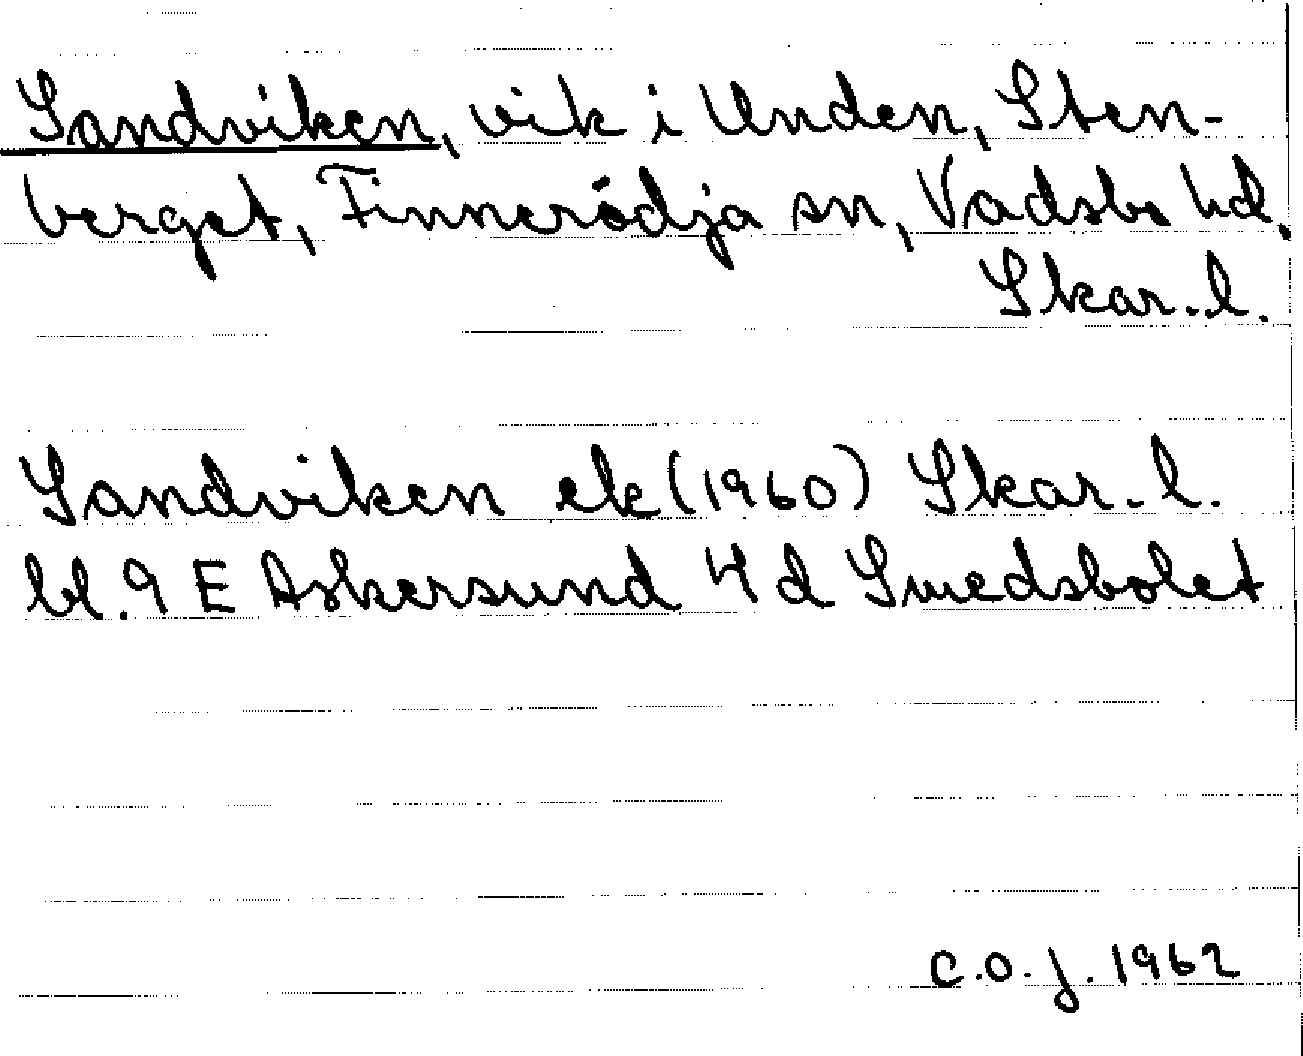 Sandviken, vik i Unden, Sten-
berget, Finnerödja sn, Vadsbo hd.
Skar. l.
Sandviken ek (1960) Skar. l.
bl. 9 E Askersund 4 d Smedsbolet
C.O.J. 1962